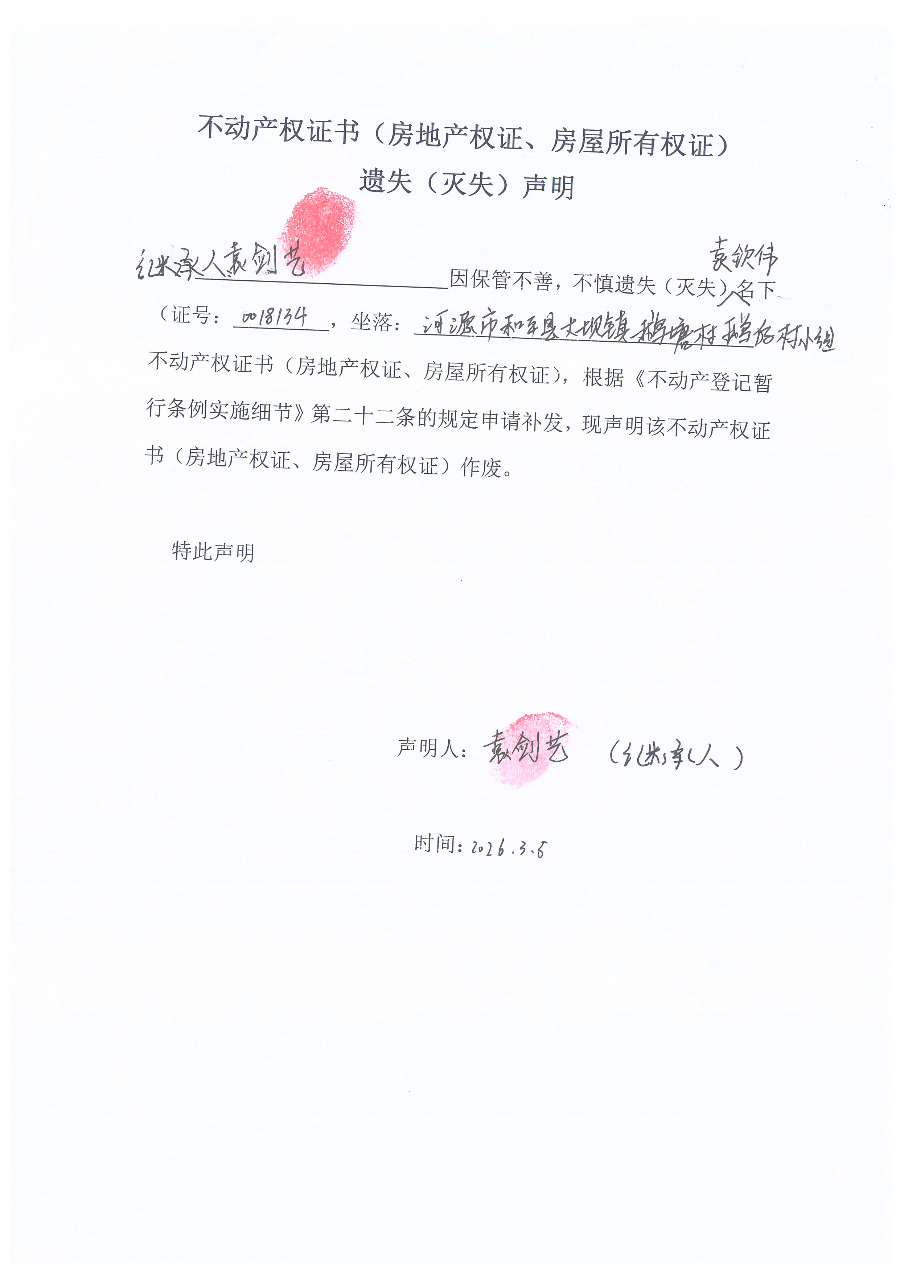 不动产权证书（房地产权证、房屋所有权证）
遗失（灭失）声明
继承人袁剑艺因保管不善，不慎遗失（灭失）袁钦伟名下
（证号：0018134，坐落：河源市和平县大坝镇鹅塘村村小组
不动产权证书（房地产权证、房屋所有权证），根据《不动产登记暂
行条例实施细节》第二十二条的规定申请补发，现声明该不动产权证
书（房地产权证、房屋所有权证）作废。
特此声明
声明人：袁剑艺（继承人）
时间：2026.3.5